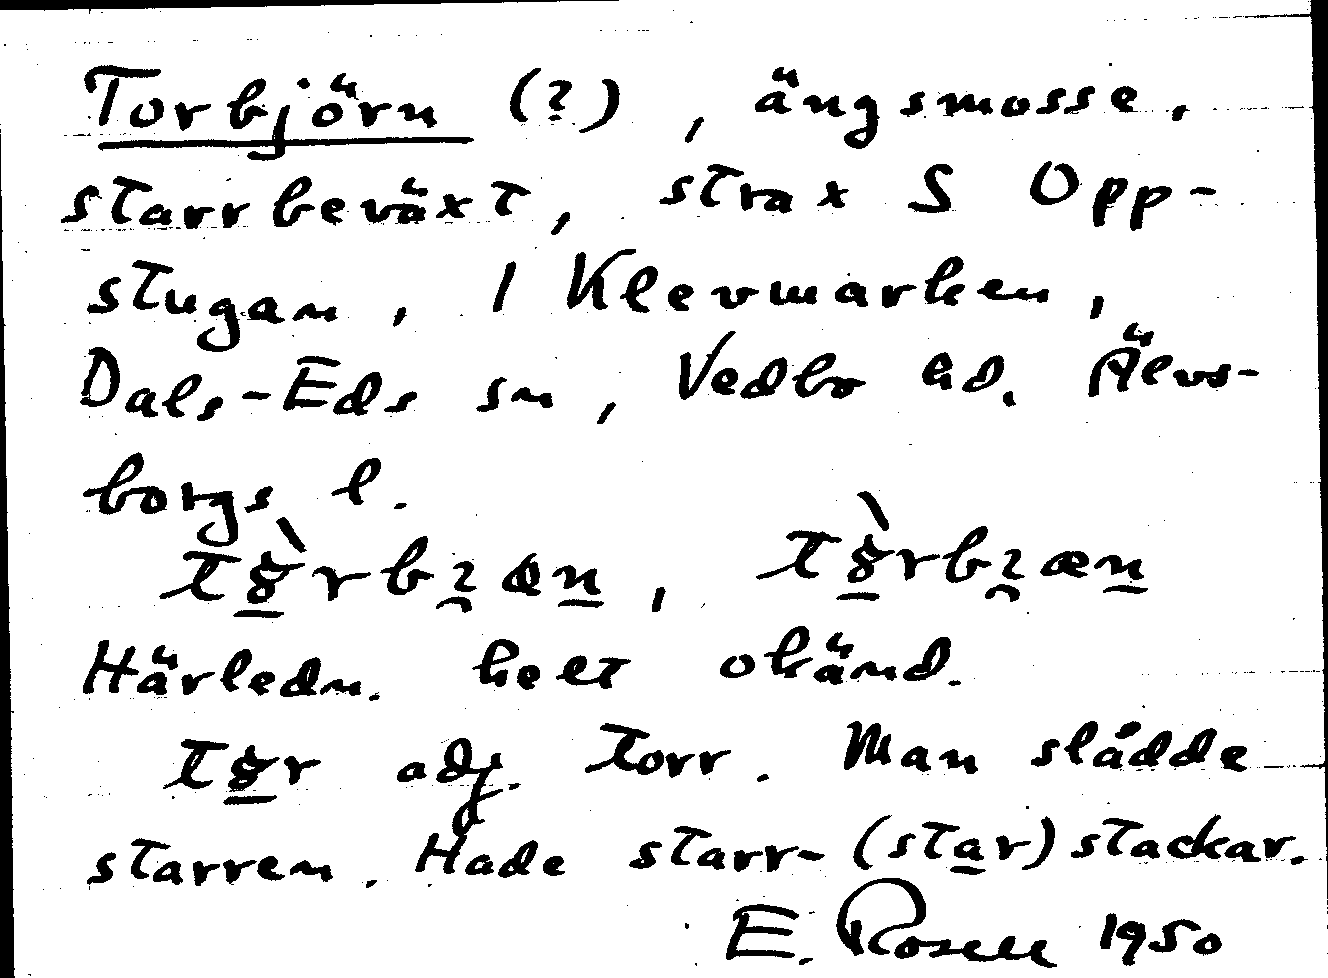 Torbjörn (?), ängsmosse,
starrbeväxt, strax S Opp-
stugan, 1 Klevmarken,
Dals-Eds sn, Vedbo hd. Älvs-
borgs l.
Härledn. helt okänd.
adj. torr. Man slådde
starren. Hade starr- (star) stackar.
E. Rosell 1950